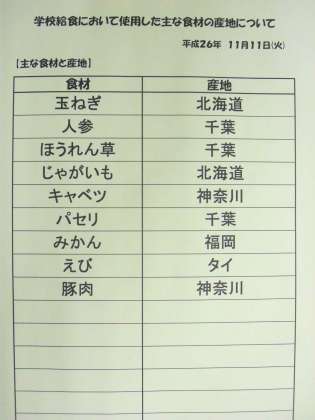 学校給食において使用した主な食材の産地について
平成26年 11月11日(火)
【主な食材と産地】
食材 産地
玉ねぎ 北海道
人参 千葉
ほうれん草 千葉
じゃがいも 北海道
キャベツ 神奈川
パセリ 千葉
みかん 福岡
えび タイ
豚肉 神奈川